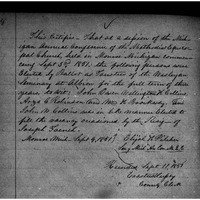 This Certifies - That at a session of the Mich-
igan Annual Conference of the Methodist Episco-
pal Church, held in Monroe Michigan commenc-
ing Sept 3rd 1851. the following persons were
Elected by Ballot as Trustees of the Wesleyan
Seminary at Albion for the full term of three
years, to wit: John Owen, Collins,
and Wm. H. Brockway. Also
John W. Collins was in like manner Elected to
fill the vacancy occasioned by the
Joseph French.
Monroe Mich. Sept 9, 1851
Elijah H. Pilcher
Secy Mich. An. Con. M.E.C.
Recorded Sept 11, 1851
County Clerk